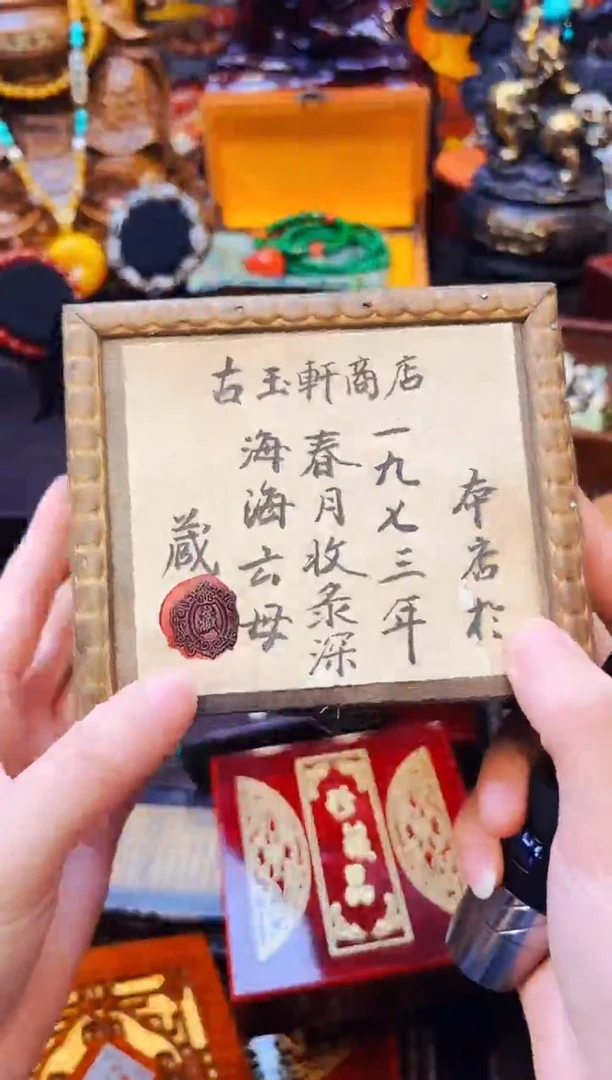 古玉軒商店
本店於
一九七三年
春月收录深
海海云母
蔵